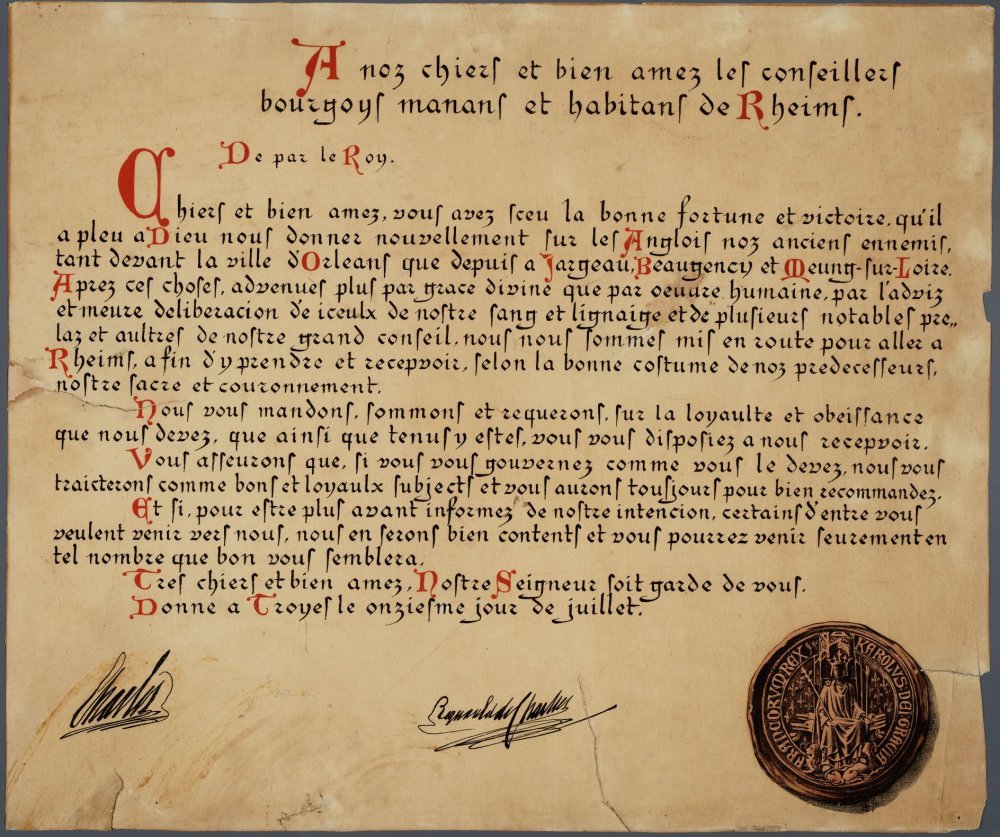 A noz chiers et bien amez les conseillers
bourgoys manans et habitans de Rheims.
De par le Roy.
Chiers et bien amez, vous avez sceu la bonne fortune et victoire, qu'il
a pleu a Dieu nous donner nouvellement sur les Anglois noz anciens ennemis,
tant devant la ville d'Orleans que depuis a Jargeau, Beaugency et Meung-sur-Loire.
Aprez ces choses, advenues plus par grace divine que par oeuvre humaine, par l'adviz
et meure deliberacion d'iceulx de nostre sang et lignaige et de plusieurs notables pre„
laz et aultres de nostre grand conseil, nous nous sommes mis en route pour aller a
Rheims, a fin d'y prendre et recepvoir, selon la bonne costume de noz predecesseurs,
nostre sacre et couronnement.
Nous vous mandons, sommons et requerons, sur la loyaulte et obeissance
que nous devez, que ainsi que tenus y estes, vous vous disposiez a nous recepvoir.
Vous asseurons que, si vous vous gouvernez comme vous le devez, nous vous
traicterons comme bons et loyaulx subjects et vous aurons tousjours pour bien recommandez.
Et si, pour estre plus avant informez de nostre intencion, certains d'entre vous
veulent venir vers nous, nous en serons bien contents et vous pourrez venir seurement en
tel nombre que bon vous semblera.
Tres chiers et bien amez, Nostre Seigneur soit garde de vous.
Donne a Troyes le onziesme jour de juillet.
Charles
Regnault de Chartres
KAROLVS·DEI·GRACIA
FRANCORVM·REX